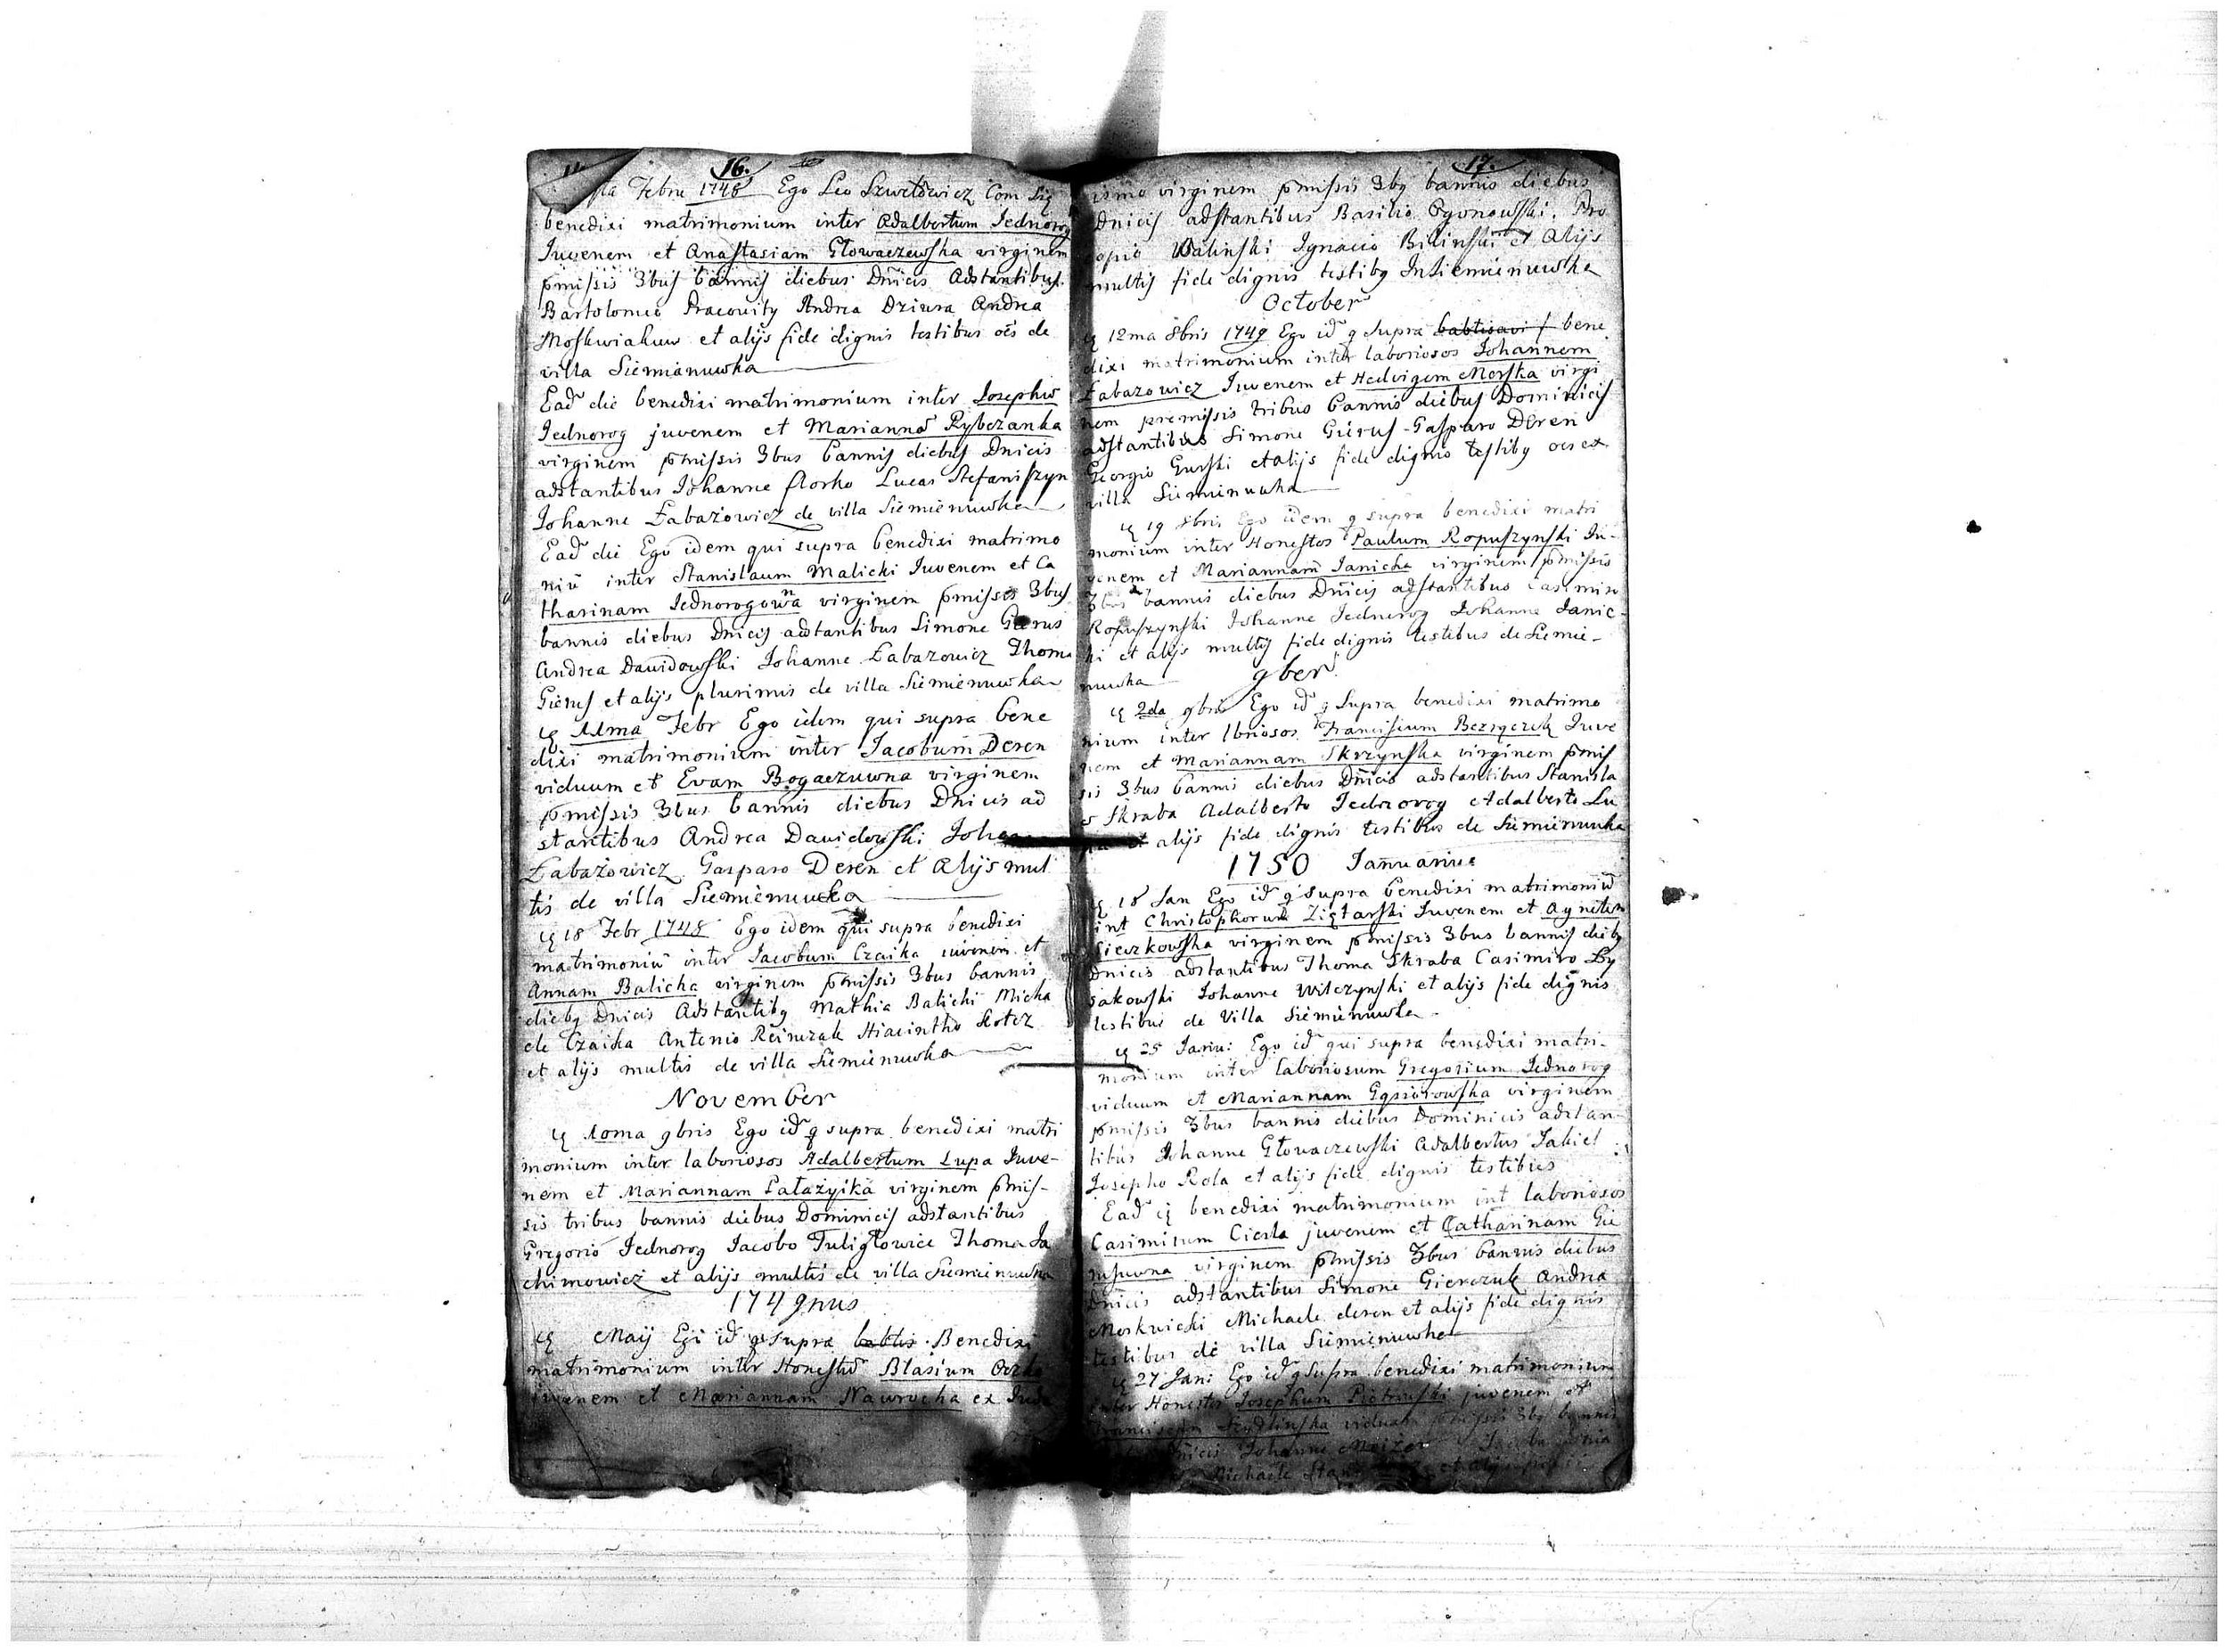 16.
Febru 1748 Ego Leo Szwetowicz Com Sie
benedixi matrimonium inter Adalbertum Jednorog
Juvenem et Anastasiam Głowaczewska virginem
pmissis 3bus bannis diebus Dnicis Adstantibus
Bartolomeo Pracowity Andrea Dziura Andrea
Moskwiakuw et alijs fide dignis testibus oēs de
villa Siemianuwka
Ead die benedixi matrimonium inter Josephū
Jednorog juvenem et Mariannā Rybczanka
virginem pmissis 3bus bannis diebus Dnicis
adstantibus Johanne florko Lucas Stefaniszyn
Johanne Łabazowicz de villa Siemienuwka
Ead die Ego idem qui supra benedixi matrimo
niū inter Stanislaum Malicki Juvenem et Ca
tharinam Jednorogowna virginem pmissis 3bus
bannis diebus Dnicis adstantibus Simone Gierus
Andrea Davidowski Johanne Łabazowicz Thoma
Gierus et alijs plurimis de villa Siemienuwka
11ma Febr Ego idem qui supra bene
dixi matrimonium inter Jacobum Deren
viduum et Evam Bogaczuwna virginem
pmissis 3bus bannis diebus Dnicis ad
stantibus Andrea Davidowski
Łabazowicz Gasparo Deren et Alijs mul
tis de villa Siemienuwka
18 Febr 1748 Ego idem qui supra benedixi
matrimoniū inter Jacobum Czaika iuvenem et
Annam Balicka virginem pmissis 3bus bannis
dieby Dnicis Adstantiby Mathia Balicki Micha
ele Czaika Antonio Reinczak Hiacintho Kotcz
et alijs multis de villa Siemienuwka
November
10ma 9bris Ego id q supra benedixi matri
monium inter laboriosos Adalbertum Lupa Juve-
nem et Mariannam Pałażyika virginem pmis-
sis tribus bannis diebus Dominicis adstantibus
Gregorio Jednorog Jacobo Tuligłowice Thoma Ja
chimowicz et alijs multis de villa Siemienuwka
1749nus
Maij Ego id q supra babtis Benedixi
matrimonium inter Honestū Blasium
iuvenem et Mariannam Nawrocka ex
17.
ismo virginem pmissis 3by bannis diebus
Dnicis adstantibus Basilio Ogonowski. Pro
copio Walinski Ignacio Bilinski et Alijs
multis fide dignis testiby In Siemienuwka
October
12ma 8bris 1749 Ego id q supra babtisavi bene
dixi matrimonium inter laboriosos Johannem
Łabazowicz Juvenem et Hedvigem Morska virgi
nem premissis tribus bannis diebus Dominicis
adstantibus Simone Gierus Gasparo Deren
Georgio Gurski et alijs fide dignis testiby oes ex
villa Siemienuwka
19 8bris Ego idem q supra benedixi matri
monium inter Honestos Paulum Ropuszynski Ju-
venem et Mariannam Janicka virginem pmissis
3bus bannis diebus Dnicis adstantibus Casimiro
Ropuszynski Johanne Jednorog Johanne Janic-
ki et alijs multis fide dignis testibus de Siemie-
nuwka
9ber
2da 9bris Ego id q Supra benedixi matrimo
nium inter lbriosos Franciscum Bezręczek Juve
nem et Mariannam Skrzynska virginem pmis
sis 3bus bannis diebus Dnicis adstantibus Stanisla
o Skraba Adalberto Jednorog Adalberto Lu
alijs fide dignis testibus de Siemienuwka
1750 Januarius
18 Jan Ego id q supra benedixi matrimoniū
int Christophorum Ziętarski Juvenem et Agnetem
Sieczkowska virginem pmissis 3bus bannis dieby
Dnicis adstantibus Thoma Skraba Casimiro Ły
sakowski Johanne Wilczynski et alijs fide dignis
testibus de Villa Siemienuwka
25 Janu: Ego id qui supra benedixi matri-
monium inter laboriosum Gregorium Jednorog
viduum et Mariannam Gąsiorowska virginem
pmissis 3bus bannis diebus Dominicis adstan-
tibus Johanne Głowaczewski Adalbertus Jakiel
Josepho Rola et alijs fide dignis testibus
Ead benedixi matrimonium int laboriosos
Casimirum Ciesla juvenem et Catharinam Gie
rusuwna virginem pmissis 3bus bannis diebus
Dnicis adstantibus Simone Gierczuk Andrea
Moskwicki Michaele deren et alijs fide dignis
testibus de villa Siemienuwka
27 Jan: Ego id q supra benedixi matrimonium
inter Honestos Josephum Piotrowski juvenem et
viduam pmissis 3by bannis
Johanne
Michaele